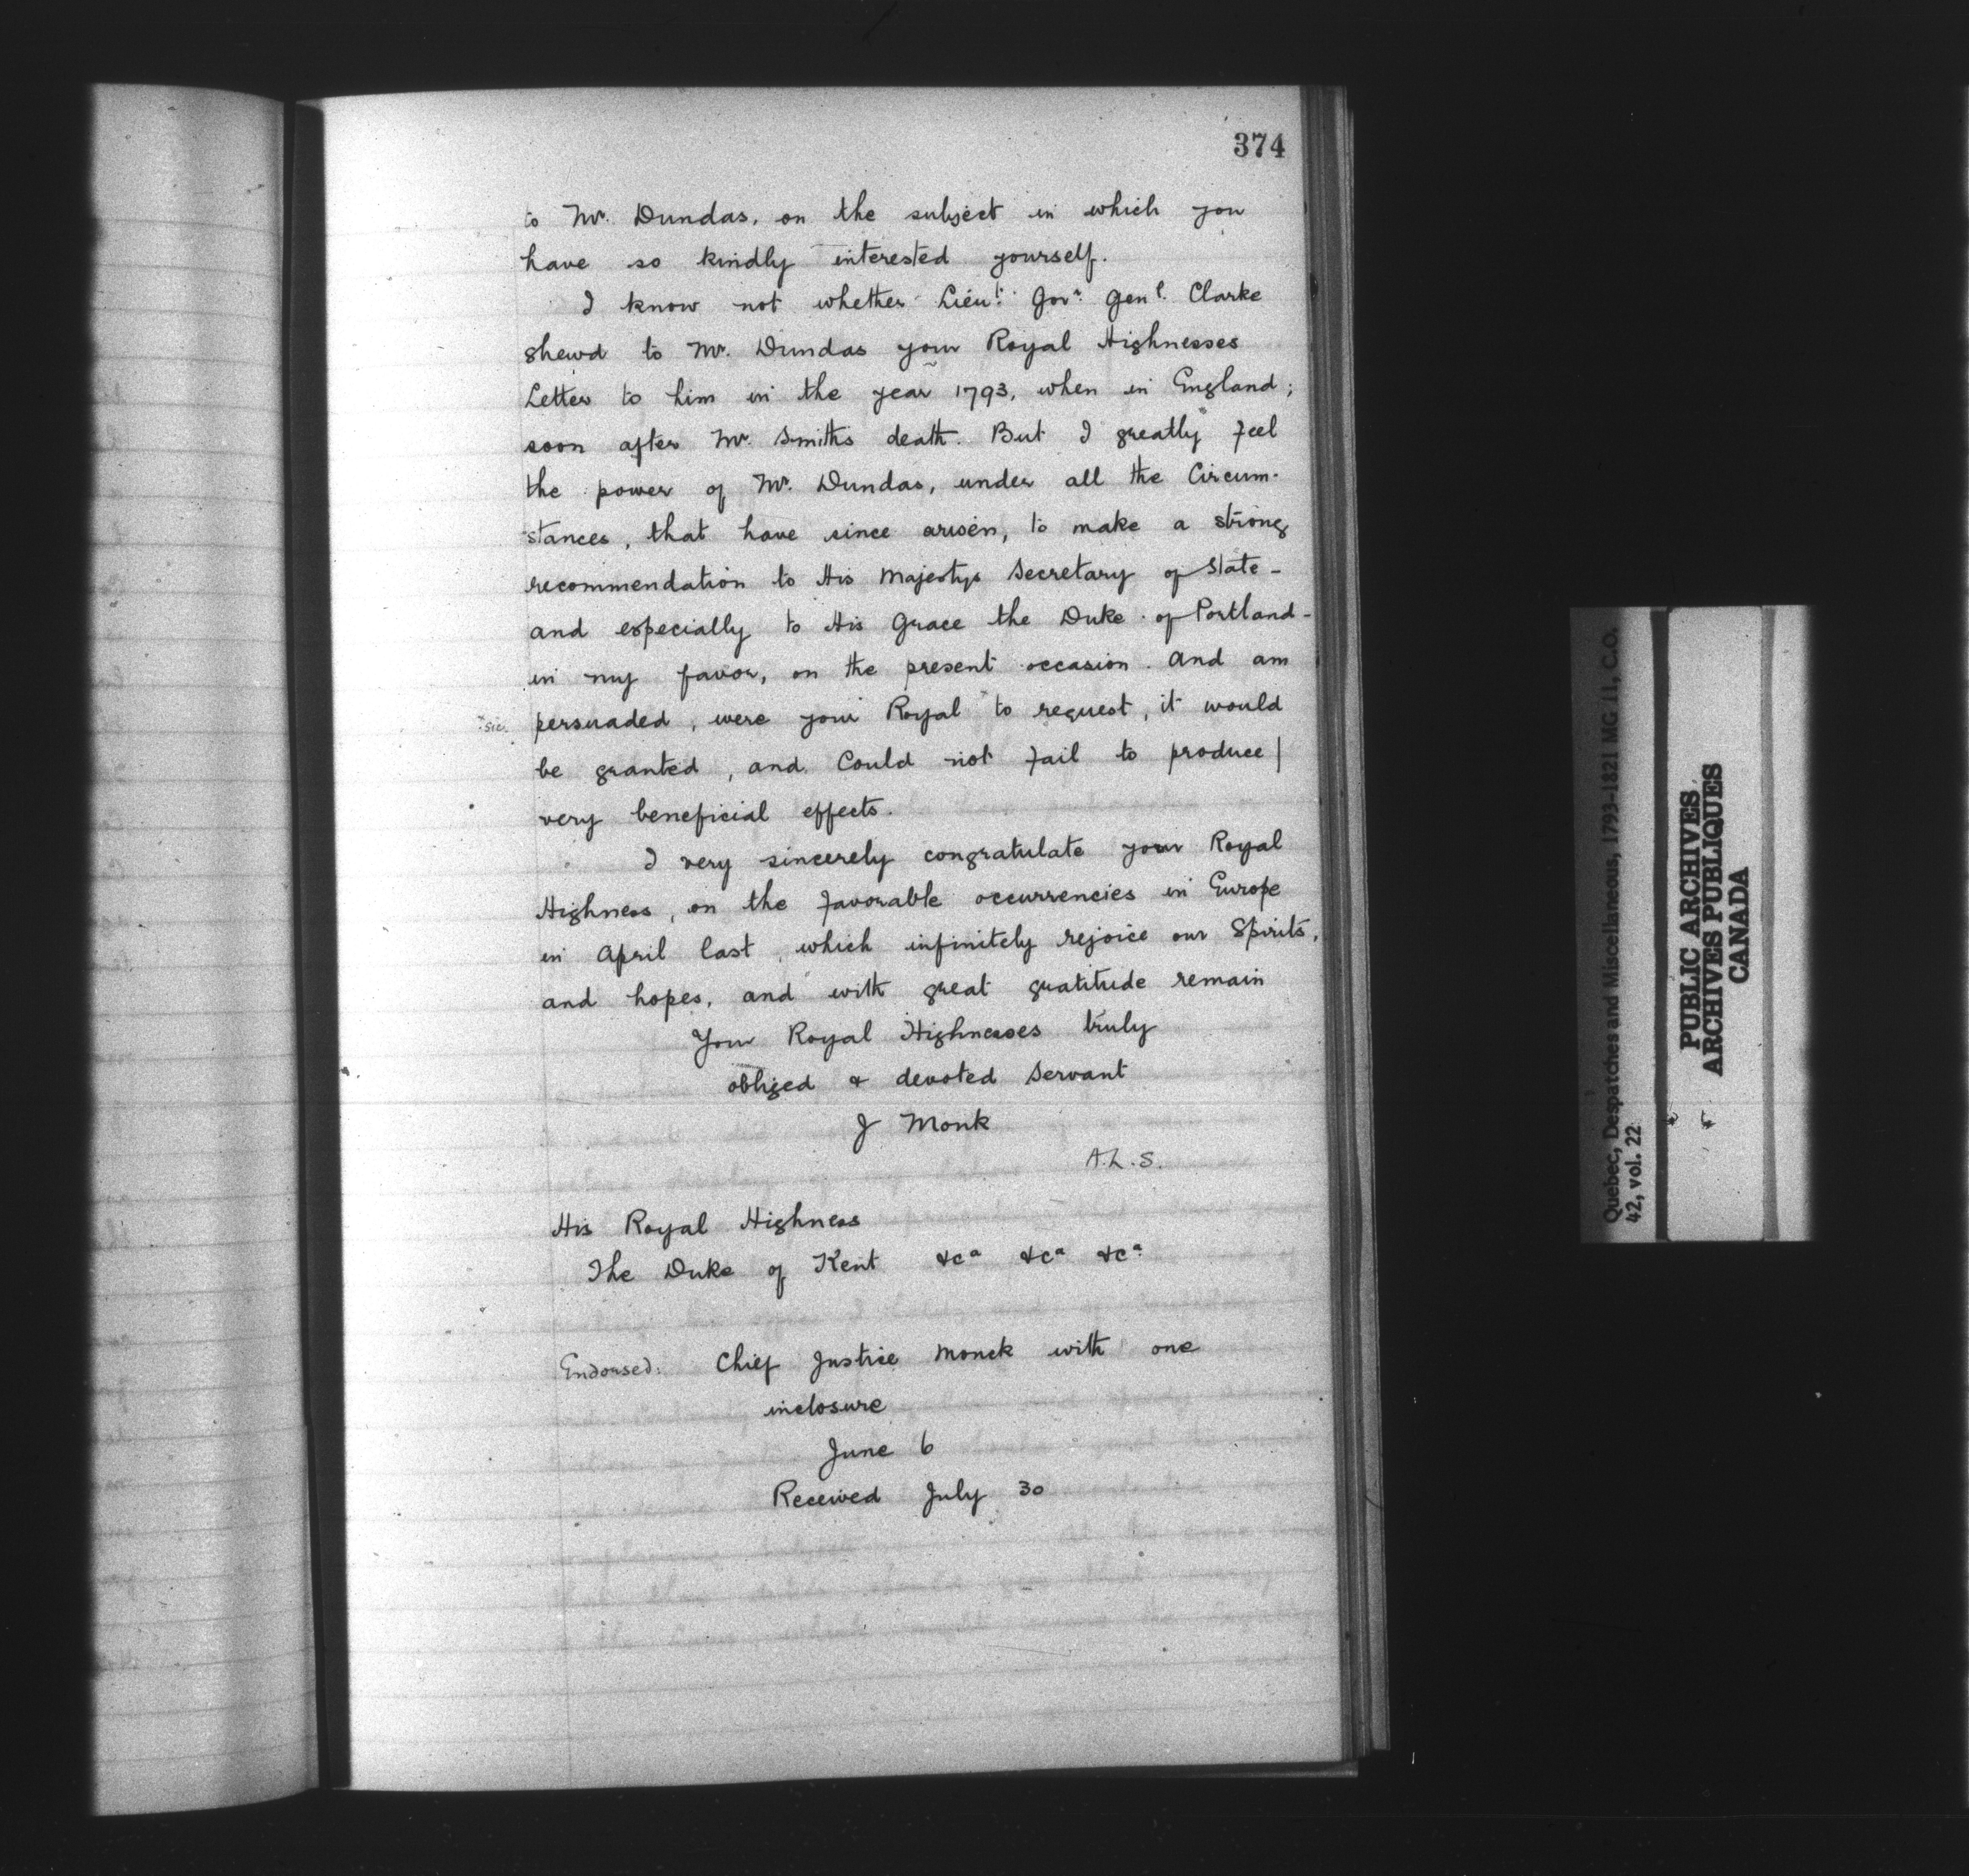 374
to Mr. Dundas, on the subject in which you
have so kindly interested yourself.
I know not whether Lieut. Govr. Genl. Clarke
shewd to Mr. Dundas your Royal Highnesses
Letter to him in the year 1793, when in England;
soon after Mr. Smiths death. But I greatly feel
the power of Mr. Dundas, under all the Circum-
stances, that have since arisen, to make a strong
recommendation to His Majestys Secretary of State -
and especially to His Grace the Duke of Portland -
in my favor, on the present occasion. And am
sic. persuaded, were your Royal to request, it would
be granted, and Could not fail to produce
very beneficial effects.
I very sincerely congratulate your Royal
Highness, on the favorable occurrencies in Europe
in April last, which infinitely rejoice our Spirits,
and hopes, and with great gratitude remain
Your Royal Highnesses truly
obliged & devoted Servant
J Monk
A.L.S.
His Royal Highness
The Duke of Kent &ca &ca &ca
Endorsed: Chief Justice Monck with one
inclosure
June 6
Received July 30
Quebec, Despatches and Miscellaneous, 1793-1821 MG 11, C.O.
42, vol. 22
PUBLIC ARCHIVES
ARCHIVES PUBLIQUES
CANADA